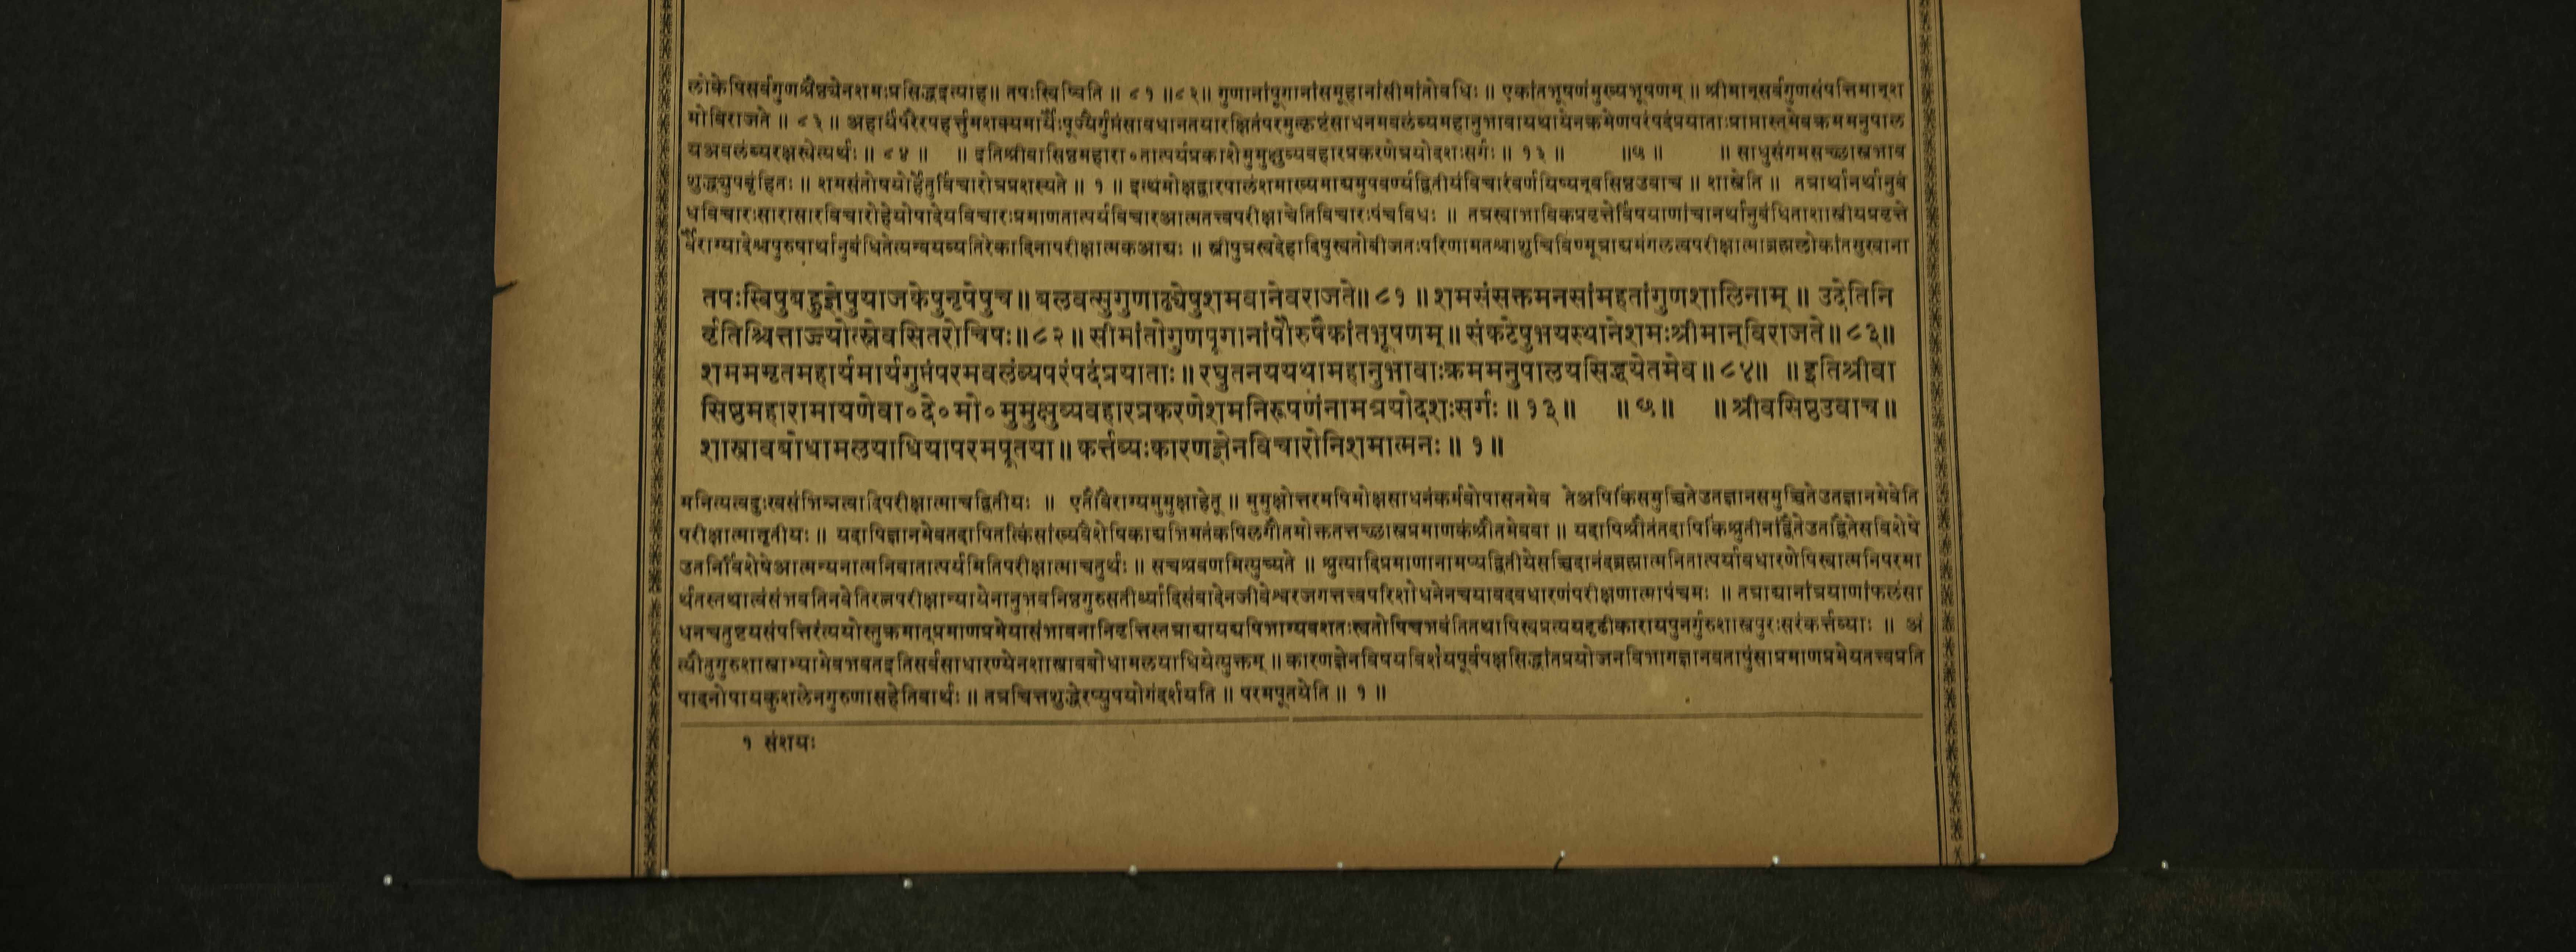 लोकेपिसर्वगुणश्रैष्ठ्येनशमःप्रसिद्धइत्याह॥ तपःस्विष्विति ॥ ८१ ॥८२॥ गुणानांपूगानांसमूहानांसीमांतोवधिः ॥ एकांतभूषणंमुख्यभूषणम् ॥ श्रीमान्सर्वगुणसंपत्तिमान्श
मोविराजते ॥ ८३ ॥ अहार्यंपरैरपहर्त्तुमशक्यमार्यैःपूज्यैर्गुप्तंसावधानतयारक्षितंपरमुत्कृष्टंसाधनमवलंब्यमहानुभावायथायेनक्रमेणपरंपदंप्रयाताःप्राप्तास्तमेवक्रममनुपाल
यअवलंब्यरक्षस्वेत्यर्थः ॥ ८४ ॥ ॥ इतिश्रीवासिष्ठमहारा०तात्पर्यप्रकाशेमुमुक्षुव्यवहारप्रकरणेत्रयोदशःसर्गः ॥ १३ ॥ ॥७॥ ॥ साधुसंगमसच्छास्त्रभाव
शुद्ध्युपबृंहितः ॥ शमसंतोषयोर्हेतुर्विचारोत्रप्रशस्यते ॥ १ ॥ इत्थंमोक्षद्वारपालंशमाख्यमाद्यमुपवर्ण्यद्वितीयंविचारंवर्णयिष्यन्वसिष्ठउवाच ॥ शास्त्रेति ॥ तत्रार्थानर्थानुबं
धविचारःसारासारविचारोहेयोपादेयविचारःप्रमाणतात्पर्यविचारआत्मतत्त्वपरीक्षाचेतिविचारःपंचविधः ॥ तत्रस्वाभाविकप्रवृत्तेर्विषयाणांचानर्थानुबंधिताशास्त्रीयप्रवृत्ते
र्वैराग्यादेश्चपुरुषार्थानुबंधितेत्यन्वयव्यतिरेकादिनापरीक्षात्मकआद्यः ॥ स्त्रीपुत्रस्वदेहादिषुस्वतोबीजतःपरिणामतश्चाशुचिविण्मूत्राद्यमंगलत्वपरीक्षात्माब्रह्मलोकांतसुखाना
तपःस्विषुबहुज्ञेषुयाजकेषुनृपेषुच॥ बलवत्सुगुणाढ्येषुशमवानेवराजते॥ ८१ ॥ शमसंसक्तमनसांमहतांगुणशालिनाम् ॥ उदेतिनि
र्वृतिश्चित्ताज्ज्योत्स्नेवसितरोचिषः॥ ८२ ॥ सीमांतोगुणपूगानांपौरुषैकांतभूषणम् ॥ संकटेषुभयस्थानेशमःश्रीमान्विराजते॥ ८३॥
शमममृतमहार्यमार्यगुप्तंपरमवलंब्यपरंपदंप्रयाताः॥ रघुतनययथामहानुभावाःक्रममनुपालयसिद्धयेतमेव॥ ८४॥ ॥ इतिश्रीवा
सिष्ठमहारामायणेवा०दे०मो०मुमुक्षुव्यवहारप्रकरणेशमनिरूपणंनामत्रयोदशःसर्गः ॥ १३॥ ॥७॥ ॥ श्रीवसिष्ठउवाच॥
शास्त्रावबोधामलयाधियापरमपूतया॥ कर्त्तव्यःकारणज्ञेनविचारोनिशमात्मनः॥ १॥
मनित्यत्वदुःखसंभिन्नत्वादिपरीक्षात्माचद्वितीयः ॥ एतौवैराग्यमुमुक्षाहेतू ॥ मुमुक्षोत्तरमपिमोक्षसाधनंकर्मवोपासनमेव तेअपिकिंसमुच्चितेउतज्ञानसमुच्चितेउतज्ञानमेवेति
परीक्षात्मातृतीयः ॥ यदापिज्ञानमेवतदापितत्किंसांख्यवैशेषिकाद्यभिमतंकपिलगौतमोक्ततत्तच्छास्त्रप्रमाणकंश्रौतमेववा ॥ यदापिश्रौतंतदापिकिंश्रुतीनांद्वैतेउताद्वैतेसविशेषे
उतनिर्विशेषेआत्मन्यनात्मनिवातात्पर्यमितिपरीक्षात्माचतुर्थः ॥ सचश्रवणमित्युच्यते ॥ श्रुत्यादिप्रमाणानामप्यद्वितीयेसच्चिदानंदब्रह्मात्मनितात्पर्यावधारणेपिस्वात्मनिपरमा
र्थतस्तथात्वंसंभवतिनवेतिरत्नपरीक्षान्यायेनानुभवनिष्ठगुरुसतीर्थ्यादिसंवादेनजीवेश्वरजगत्तत्त्वपरिशोधनेनचयावदवधारणंपरीक्षणात्मापंचमः ॥ तत्राद्यानांत्रयाणांफलंसा
धनचतुष्टयसंपत्तिरंत्ययोस्तुक्रमात्प्रमाणप्रमेयासंभावनानिवृत्तिस्तत्राद्यायद्यपिभाग्यवशतःस्वतोपिचभवंतितथापिस्वप्रत्ययदृढीकारायपुनर्गुरुशास्त्रपुरःसरंकर्त्तव्याः ॥ अं
त्यौतुगुरुशास्त्राभ्यामेवभवतइतिसर्वसाधारण्येनशास्त्रावबोधामलयाधियेत्युक्तम् ॥ कारणज्ञेनविषयविशंयपूर्वपक्षसिद्धांतप्रयोजनविभागज्ञानवतापुंसाप्रमाणप्रमेयतत्त्वप्रति
पादनोपायकुशलेनगुरुणासहेतिवार्थः ॥ तत्रचित्तशुद्धेरप्युपयोगंदर्शयति ॥ परमपूतयेति ॥ १ ॥
१ संशयः